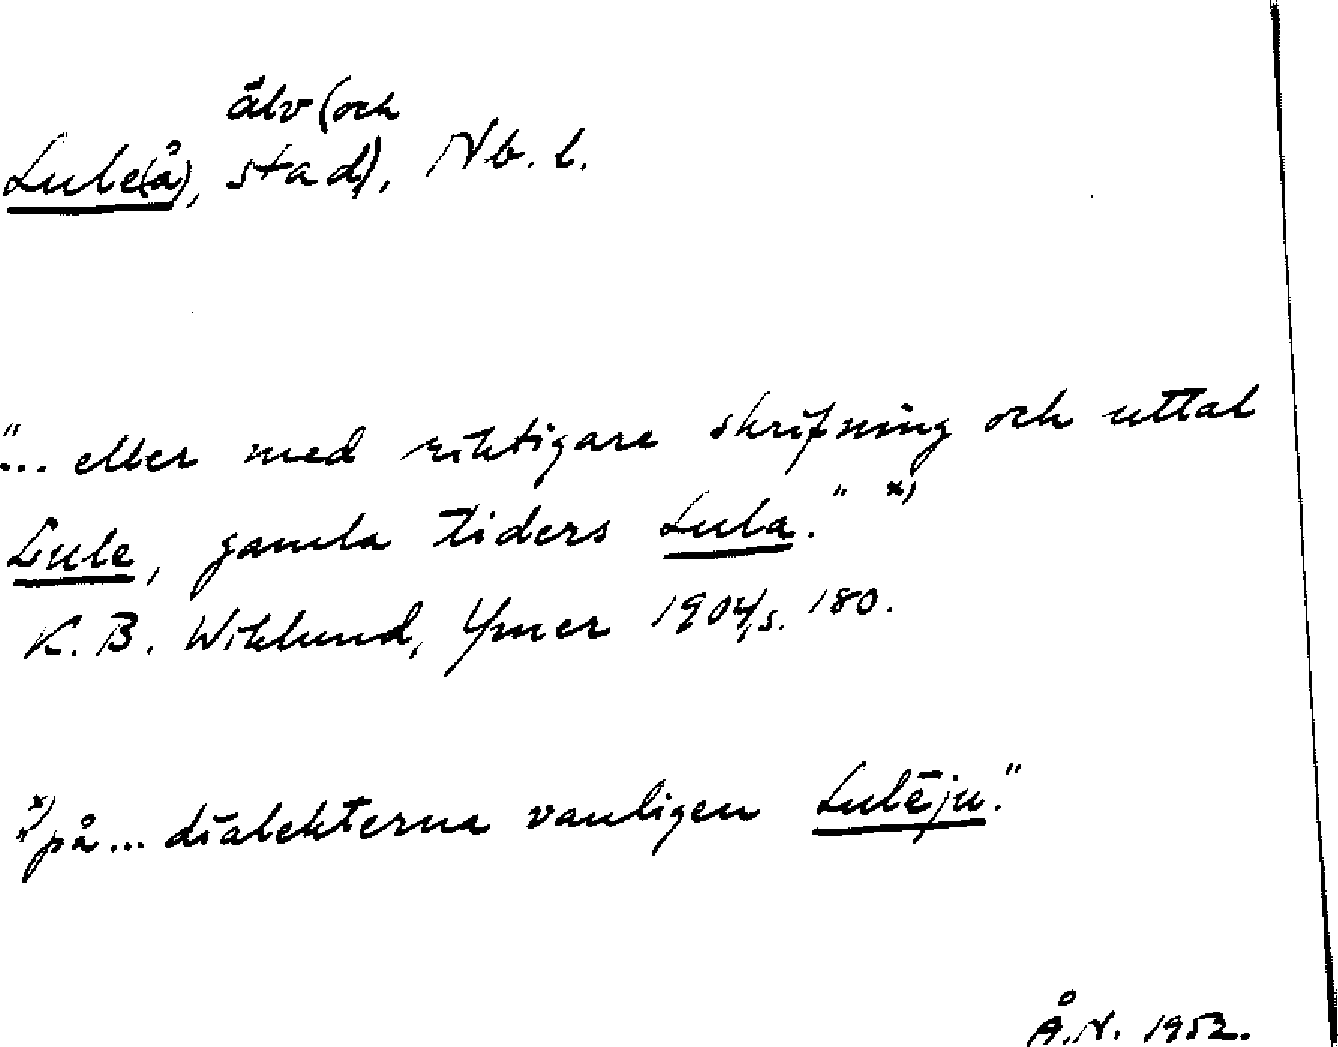 älv (och
Lule(å), stad), Nb. l.
"... eller med riktigare skrifning och uttal
Lule, gamla tiders Lula." x)
K. B. Wiklund, Ymer 1904, s. 180.
x) "på ... dialekterna vanligen Lulēju."
Å.N. 1952.